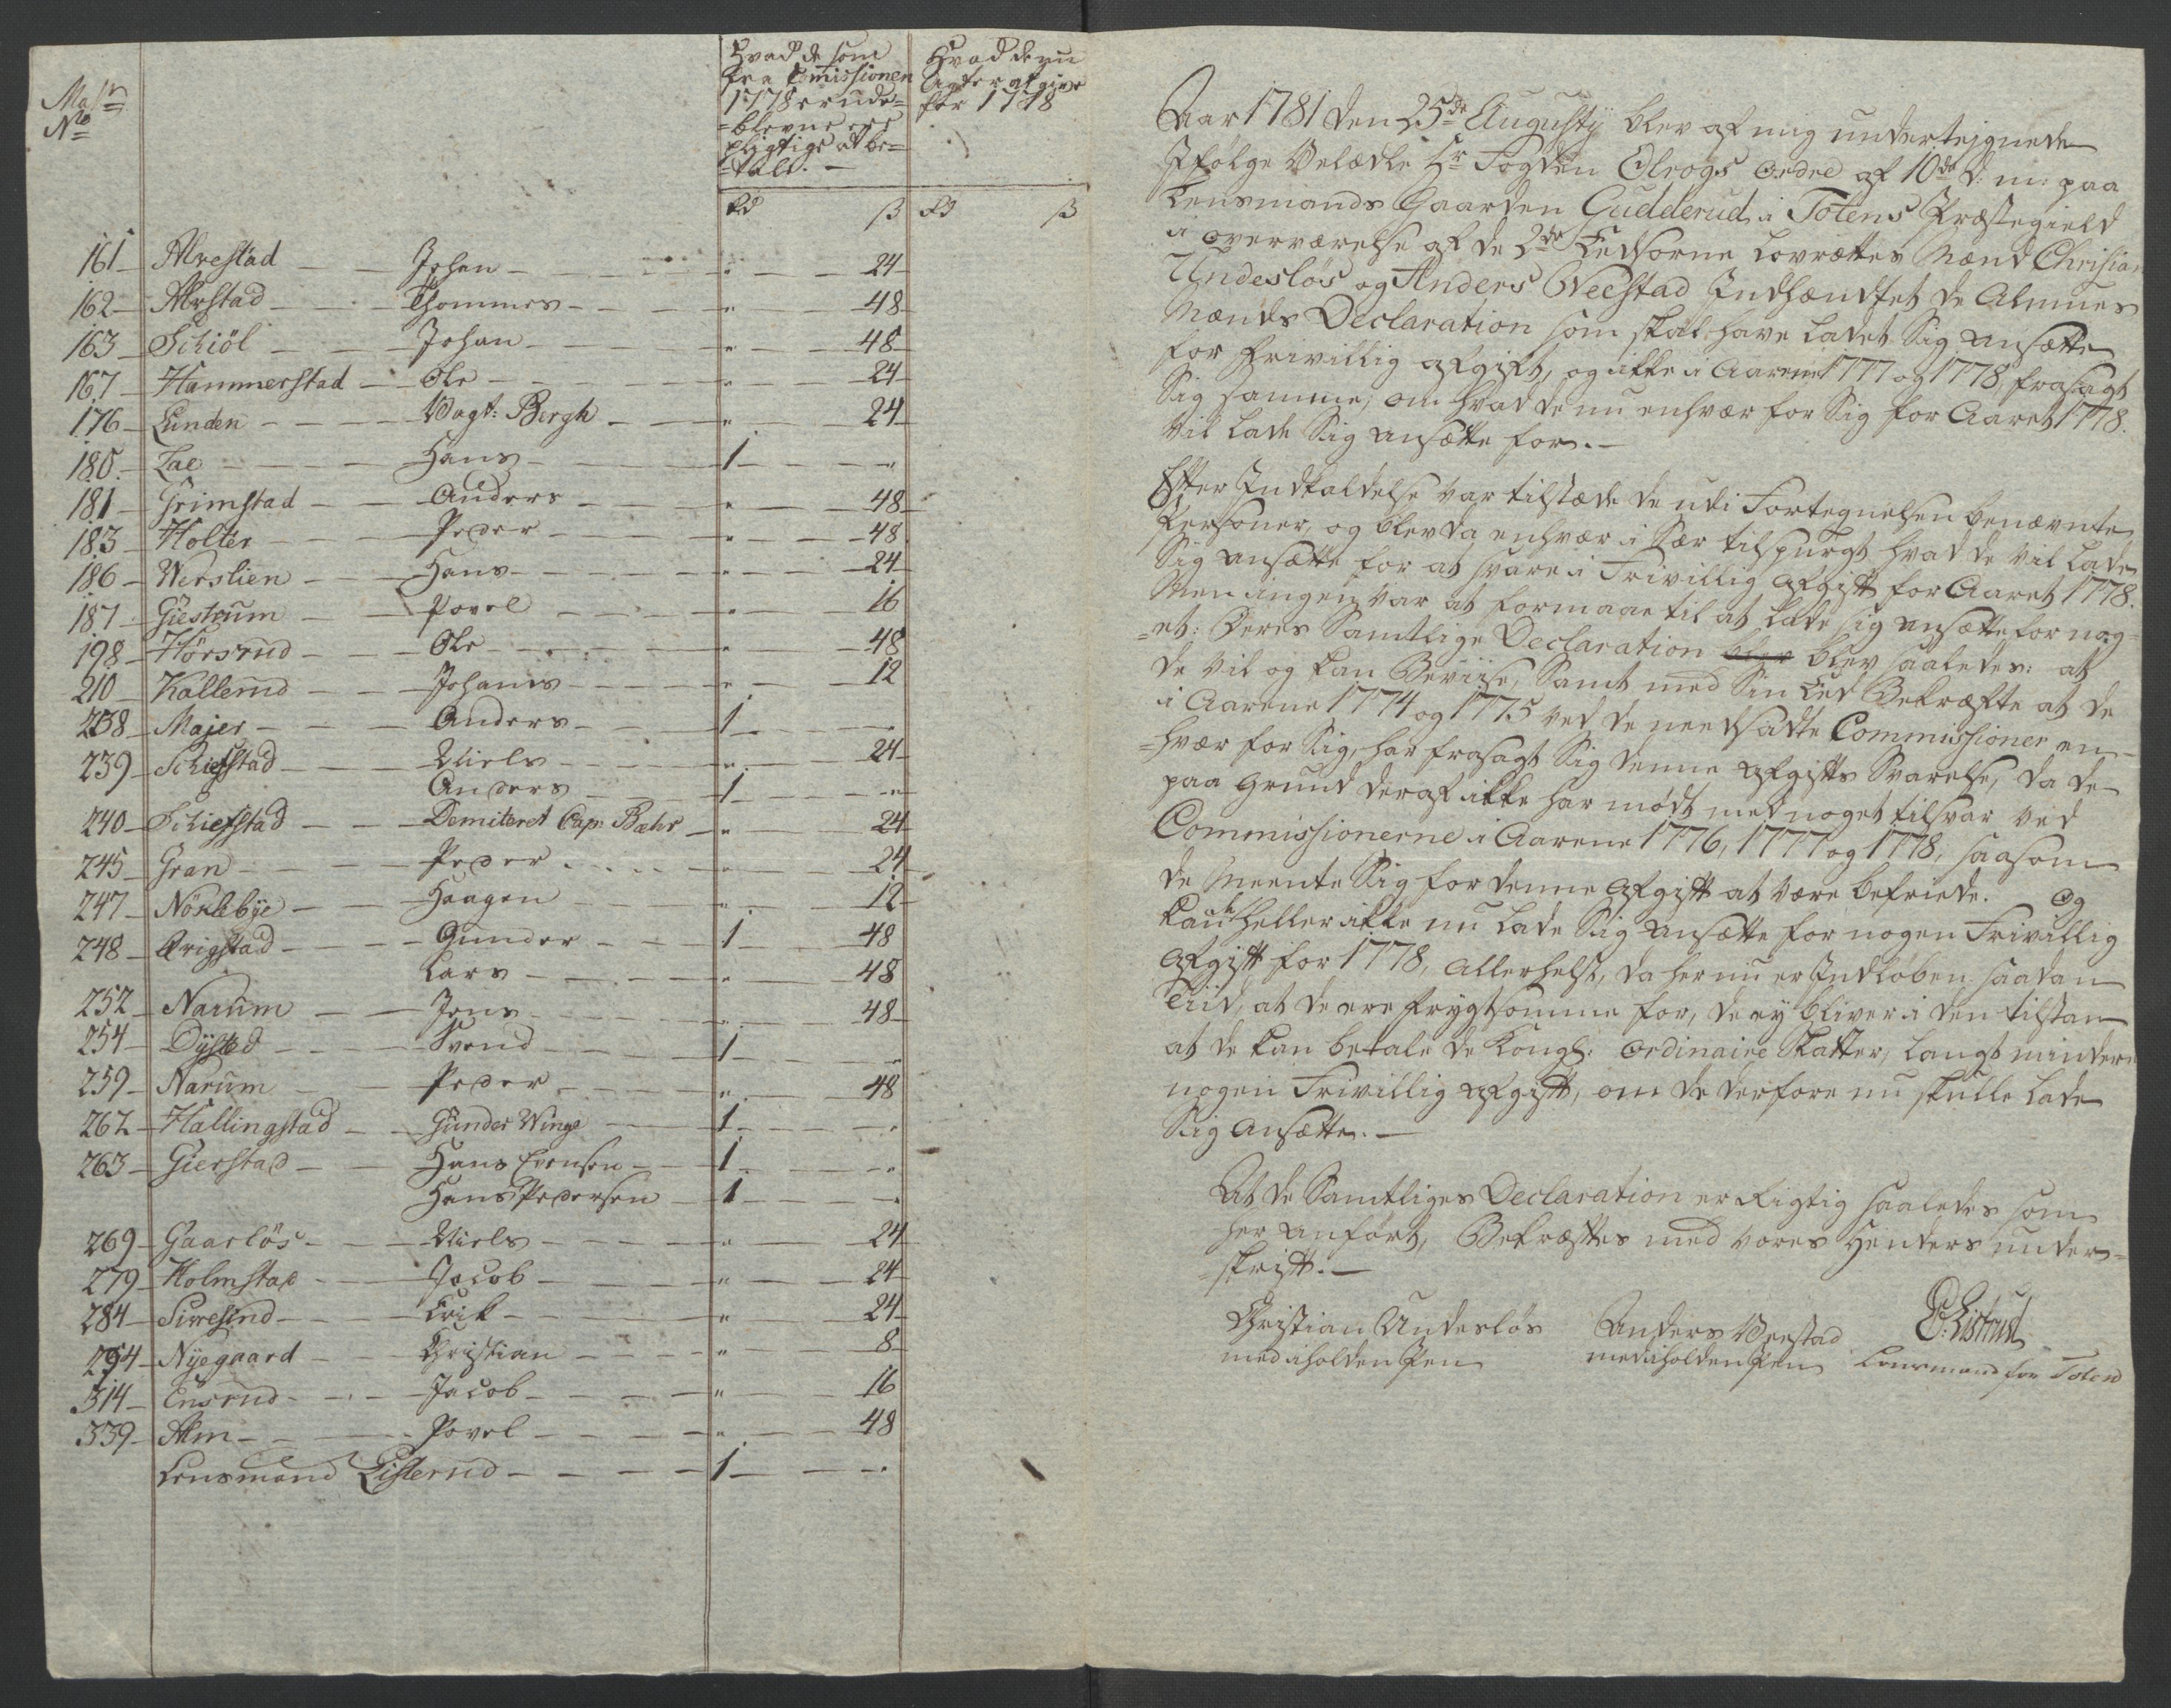 Hvad de som
fra Comissionen
1778 er ude-
=blevne ere
pligtige at be-
=tale.
Hvad de nu
agter at give
for 1778
Matr
No
rd ß rd ß
161 Alvestad Johan " 24
162 Alvstad Thommes " 48
163 Schiöl Johan " 48
167 Hammerstad Ole " 24
176 Lunden Vagt: Bergh " 24
180 Lae Hans 1 "
181 Grimstad Anders " 48
183 Holter Peder " 48
186 Werslien Hans " 24
187 Giestrum Povel " 16
198 Hörsrud Ole " 48
210 Kallerud Johanes " 12
238 Majer Anders 1 "
239 Schiefstad Niels " 24
Anders 1 "
240 Schiefstad Demiteret Cap: Bæhr " 24
245 Gran Peder " 24
247 Nöklebÿe Haagen " 12
248 Qvigstad Gunder 1 48
Lars " 48
252 Narum Jens " 48
254 Dÿsted Svend 1 "
259 Narum Peder " 48
262 Hallingstad Gunder Winge 1 "
263 Gierstad Hans Evensen 1 "
Hans Pedersen 1 "
269 Gaarlös Niels " 24
279 Holmstad Jacob " 24
284 Sivesind Erik " 24
294 Nÿegaard Christian " 8
314 Ensrud Jacob " 16
339 Alm Povel " 48
Lensmand Listerud 1 "
Aar 1781 den 25de Augustÿ blev af mig undertegnede
Ifölge Velædle Hr Fogden Elrogs ordre af 10de d: m: paa
Lensmands Gaarden Gudderud i Totens Præstegield
i overværelse af de 2de Eedsorne Lovrættes Mænd Chrisian
Undeslös og Anders Weestad Indhændtet de Almues
Mænds Declaration som skal have ladet Sig ansætte
for frivillig afgift, og ikke i Aarene 1777 og 1778 frasagt
Sig samme, om hvad de nu enhver for Sig for Aaret 1778.
vil lade Sig ansætte for.
Efter Indkaldelse var tilstæde de udi Fortegnelsen benævnte
Personer, og blev da enhvær i Sær tilspurgt hvad de vil lade
Sig ansætte for at svare i Frivillig Afgift for Aaret 1778.
Men ingen var at formaae til at lade sig ansætte for nog-
=et: Deres Samtlige Declaration blev blev saaledes: at
de vil og kan Beviise, Samt med Sin Eed Bekræfte at de
i Aarene 1774 og 1775 ved de needsadte Commissioner en-
=hvær for Sig, har frasagt Sig denne afgifts Svarelse, da de
paa Grund deraf ikke har mødt med noget tilsvar ved
Commissionerne i Aarene 1776, 1777 og 1778, saasom
de Meente Sig for denne Afgift at være befriede. Og
kan de heller ikke nu lade Sig ansætte for nogen Frivillig
Afgift for 1778, Allerhelst, da her nu er Indløben saadan
Tiid, at de ere frygtsomme for, de ey bliver i den tilstan
at de kan betale de Kongl: ordinaire Skatter, langt mindere
nogen Frivillig Afgift, om de derfore nu skulle lade
Sig ansætte.
At de Samtliges Declaration er Rigtig saaledes som
her anfört, Bekræftes med vores Hænders under-
=skrift.
Christian Undeslös Anders Veestad P: Listerud
med iholden Pen med iholden Pen Lensmand for Toten